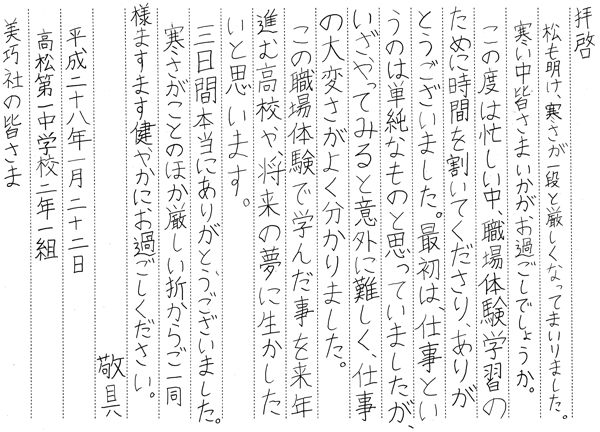 拝啓
松も明け、寒さが一段と厳しくなってまいりました。
寒い中皆さまいかがお過ごしでしょうか。
この度は忙しい中、職場体験学習の
ために時間を割いてくださり、ありが
とうございました。最初は、仕事とい
うのは単純なものと思っていましたが、
いざやってみると意外に難しく、仕事
の大変さがよく分かりました。
この職場体験で学んだ事を来年
進む高校や、将来の夢に生かした
いと思います。
三日間本当にありがとうございました。
寒さがことのほか厳しい折からご一同
様ますます健やかにお過ごしください。
敬具
平成二十八年一月二十二日
高松第一中学校二年一組
美巧社の皆さま